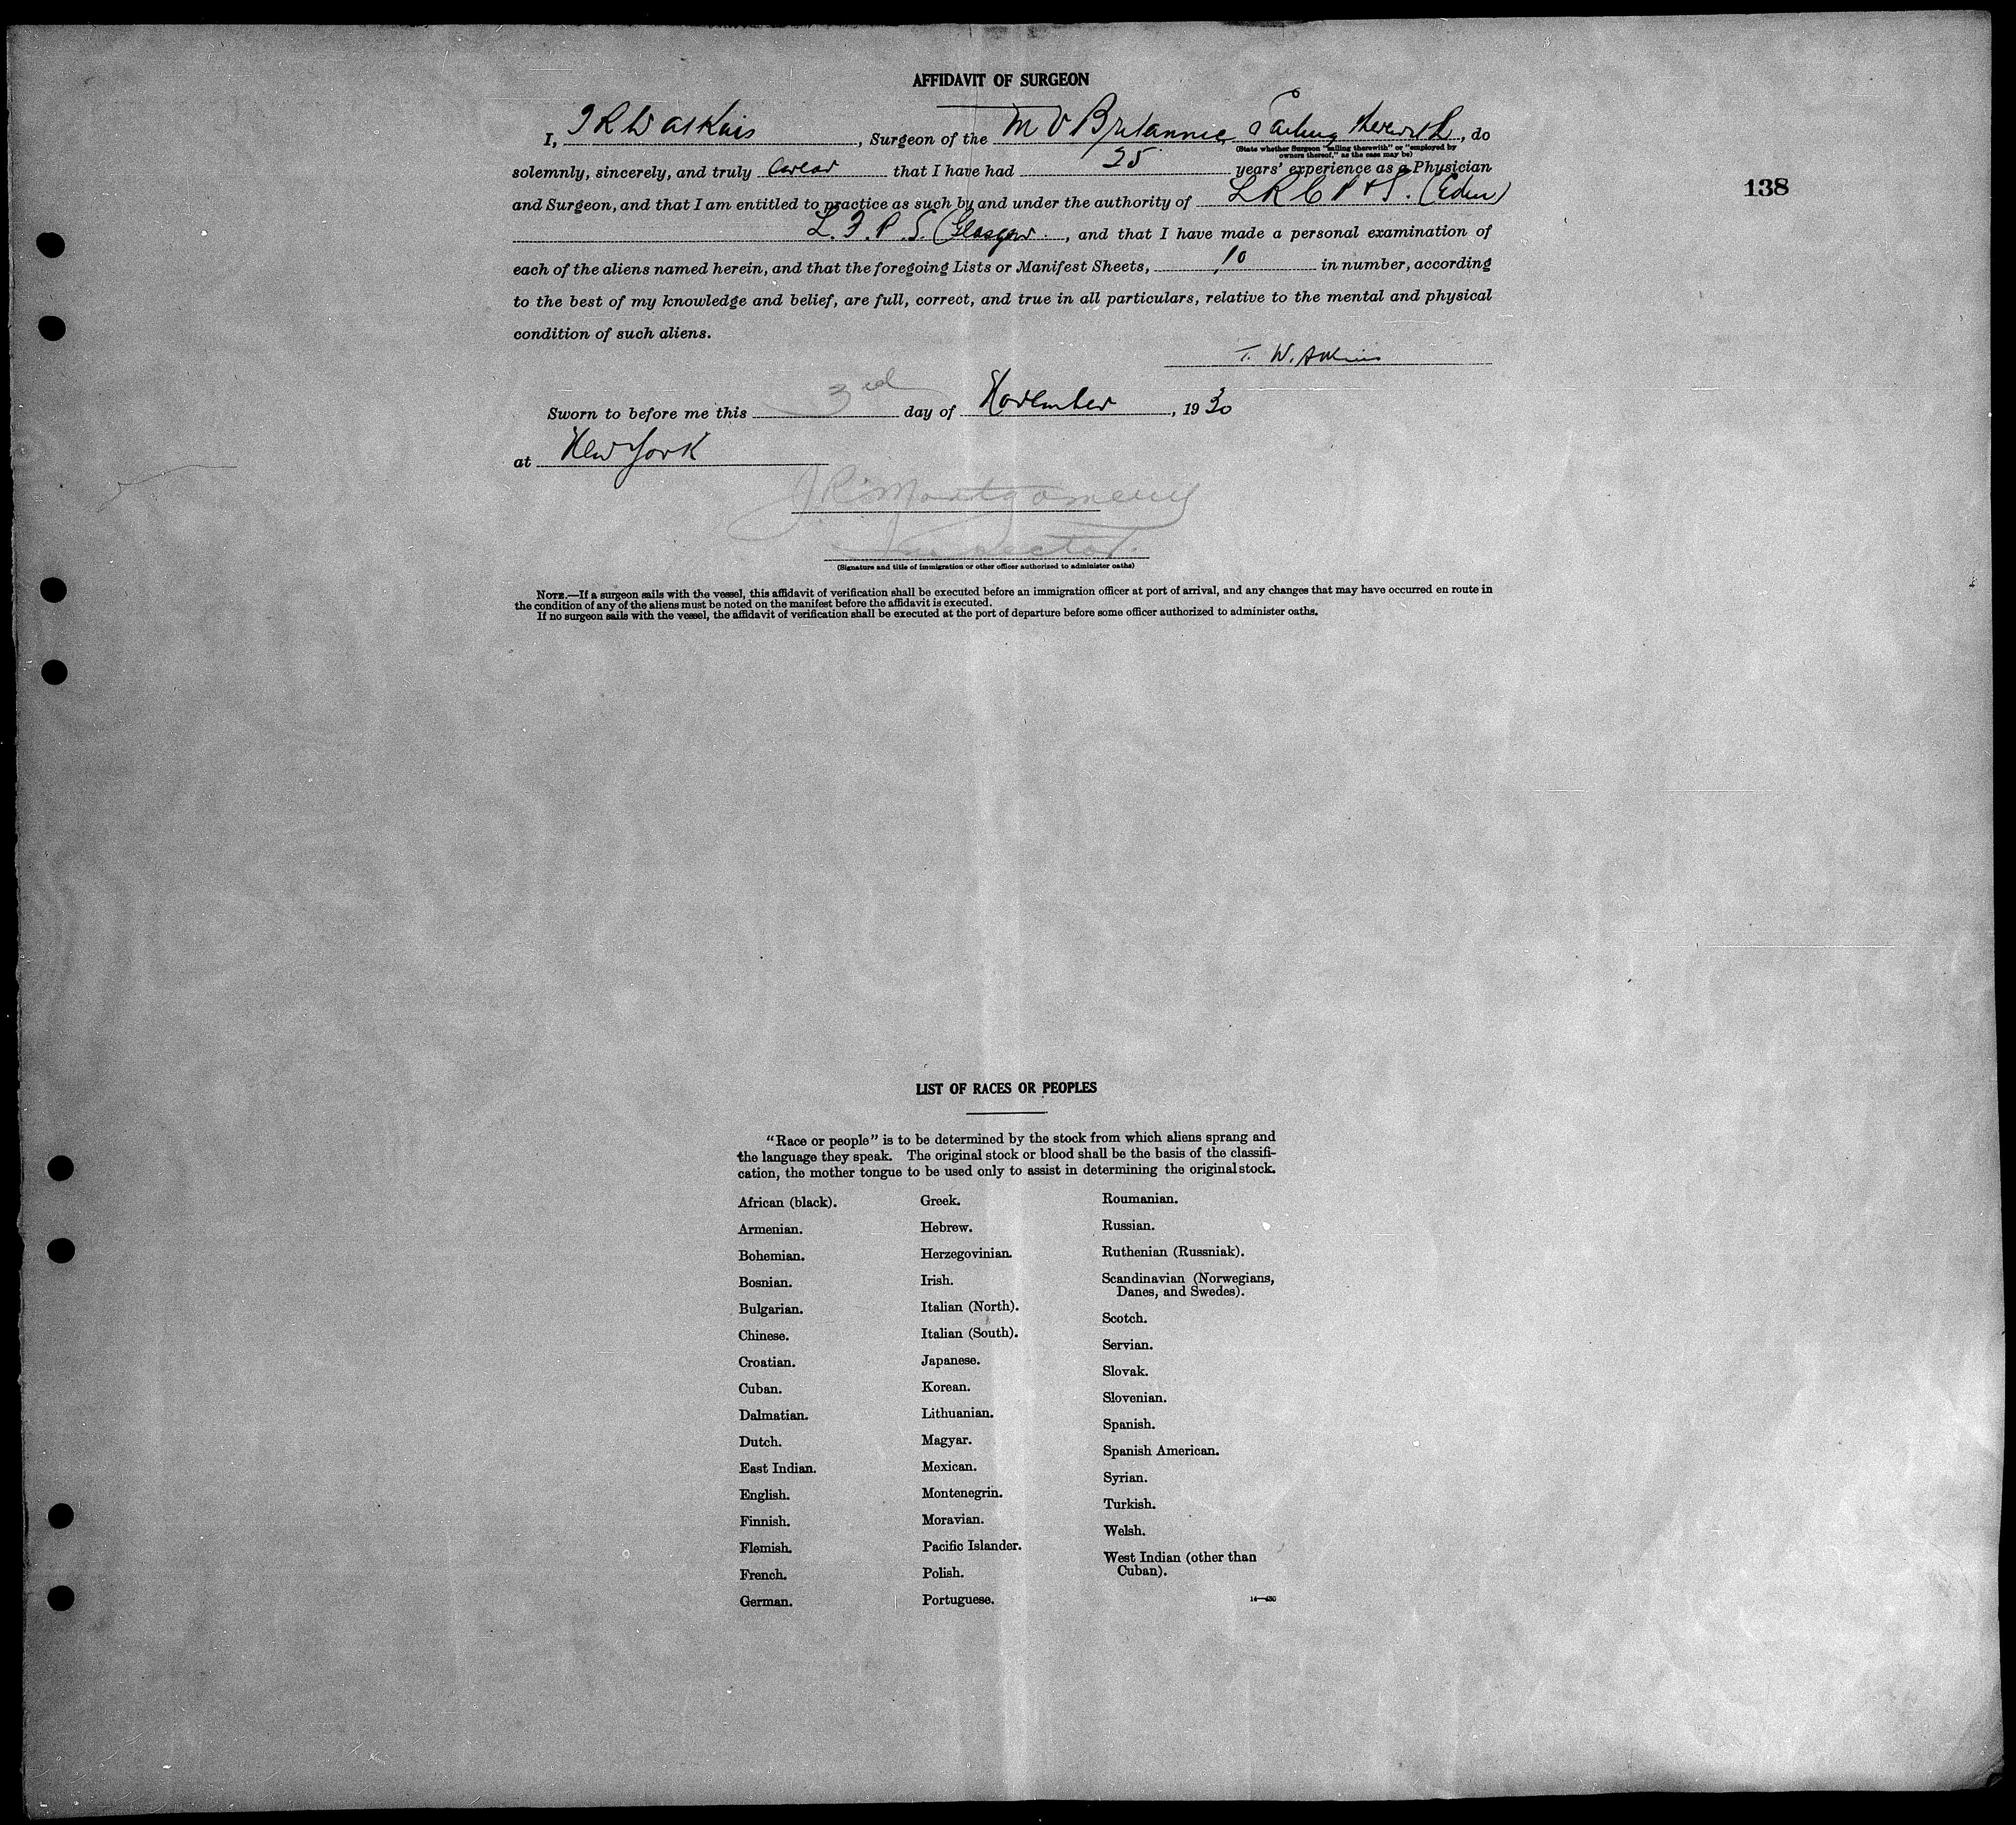 AFFIDAVIT OF SURGEON
I, , Surgeon of the M V Britannic, Sailing therewith, do
(State whether Surgeon "sailing therewith" or "employed by
owners thereof," as the case may be)
solemnly, sincerely, and truly swear that I have had 25 years' experience as a Physician
138
and Surgeon, and that I am entitled to practice as such by and under the authority of L R C P & S. (Edin)
L. F. P. S. (Glasgow. , and that I have made a personal examination of
each of the aliens named herein, and that the foregoing Lists or Manifest Sheets, 10 in number, according
to the best of my knowledge and belief, are full, correct, and true in all particulars, relative to the mental and physical
condition of such aliens.
Sworn to before me this 3rd day of November, 1930
at New York
J R Montgomery
Inspector.
(Signature and title of immigration or other officer authorized to administer oaths)
NOTE.—If a surgeon sails with the vessel, this affidavit of verification shall be executed before an immigration officer at port of arrival, and any changes that may have occurred en route in
the condition of any of the aliens must be noted on the manifest before the affidavit is executed.
If no surgeon sails with the vessel, the affidavit of verification shall be executed at the port of departure before some officer authorized to administer oaths.
LIST OF RACES OR PEOPLES
"Race or people" is to be determined by the stock from which aliens sprang and
the language they speak. The original stock or blood shall be the basis of the classifi-
cation, the mother tongue to be used only to assist in determining the original stock.
African (black).
Armenian.
Bohemian.
Bosnian.
Bulgarian.
Chinese.
Croatian.
Cuban.
Dalmatian.
Dutch.
East Indian.
English.
Finnish.
Flemish.
French.
German.
Greek.
Hebrew.
Herzegovinian.
Irish.
Italian (North).
Italian (South).
Japanese.
Korean.
Lithuanian.
Magyar.
Mexican.
Montenegrin.
Moravian.
Pacific Islander.
Polish.
Portuguese.
Roumanian.
Russian.
Ruthenian (Russniak).
Scandinavian (Norwegians,
Danes, and Swedes).
Scotch.
Servian.
Slovak.
Slovenian.
Spanish.
Spanish American.
Syrian.
Turkish.
Welsh.
West Indian (other than
Cuban).
14—430